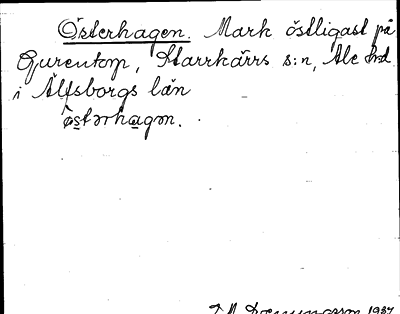 Österhagen. Mark östligast på
Gurentorp, Starrkärrs s:n, Ale hd
i Älfsborgs län
östərhagən.
1937